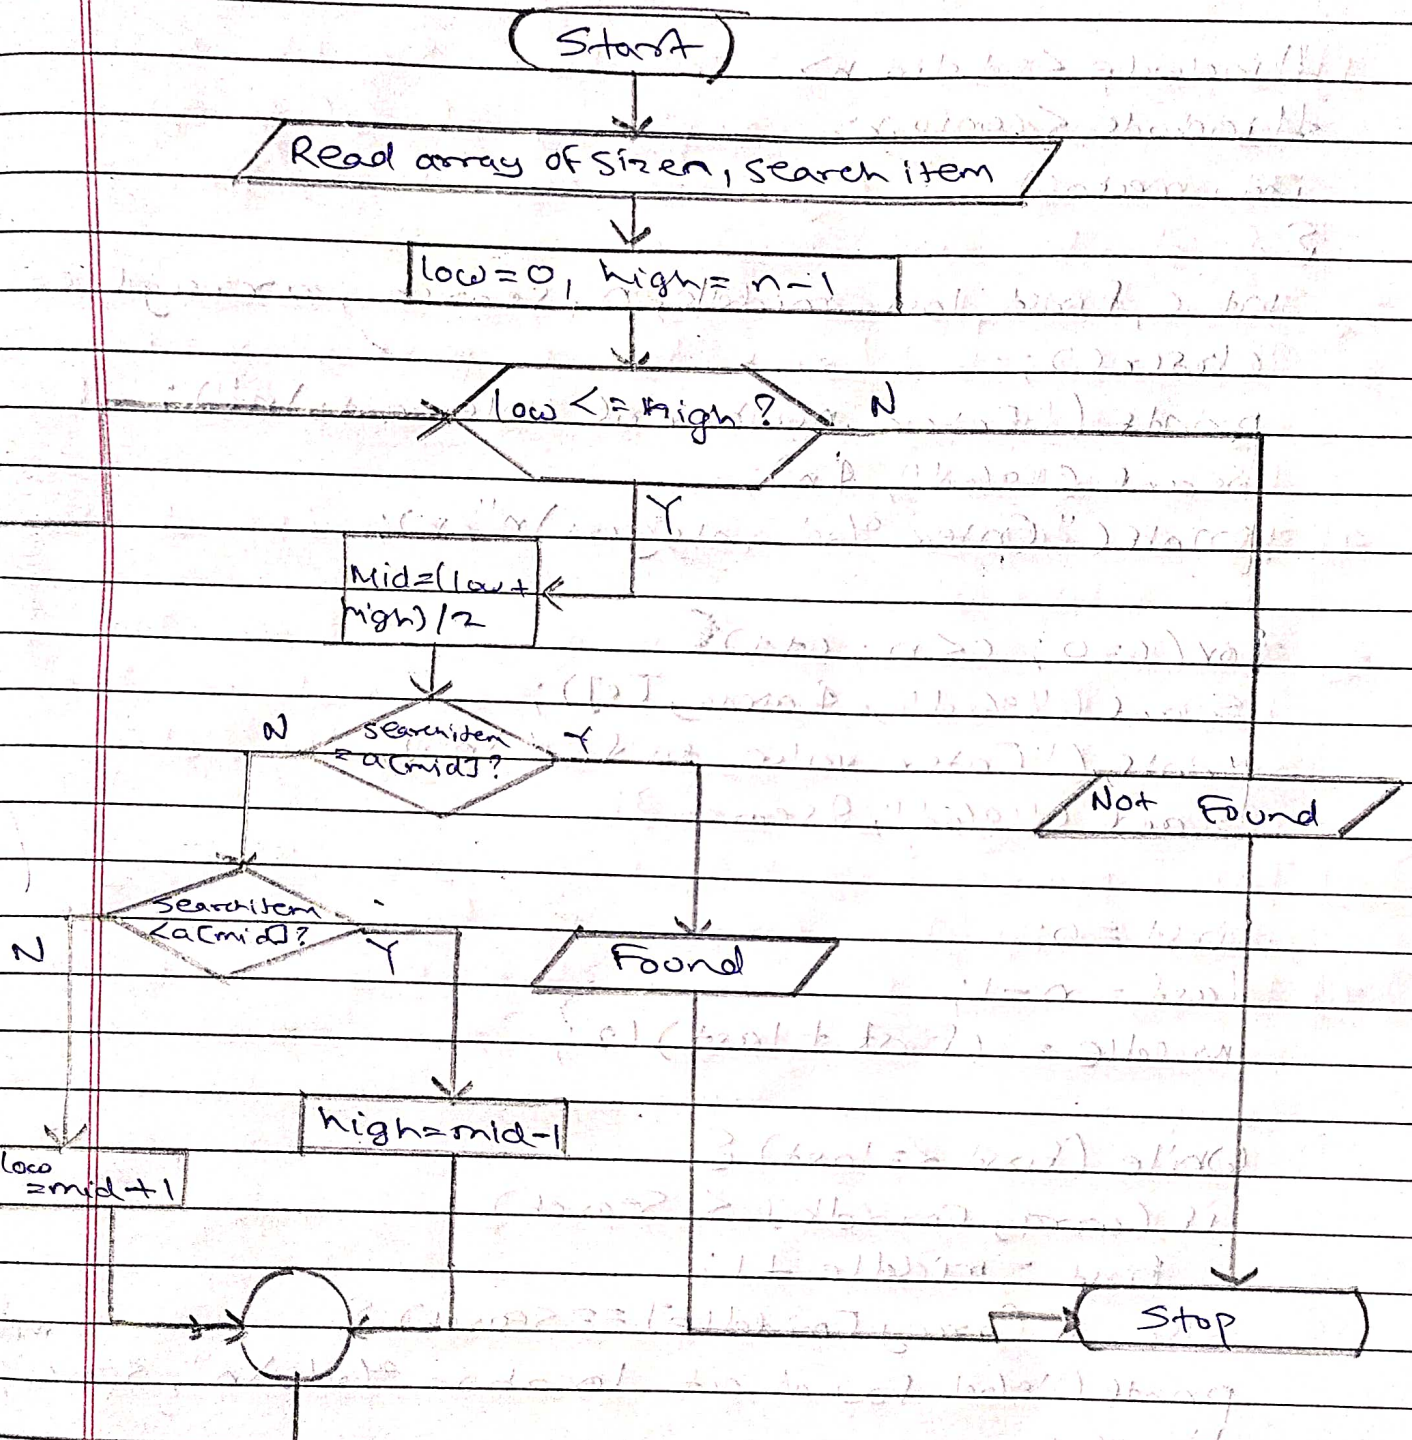 Start
Read array of sizen, search item
low=0, high= n-1
low <= high ?
N
Y
Mid=(low+
high)/2
N
searchitem
= a[mid]?
Y
Not Found
searchitem
<a[mid]?
N
Y
Found
high=mid-1
low
=mid+1
Stop